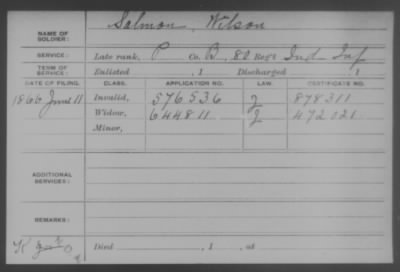 NAME OF SOLDIER: Salmon, Wilson
SERVICE: Late rank, P Co. B, 80 Reg't Ind Inf
TERM OF SERVICE: Enlisted , 1 Discharged , 1
DATE OF FILING. CLASS. APPLICATION NO. LAW. CERTIFICATE NO.
Invalid, 576536 J 878311
Widow, 644811 J 472021
Minor,
ADDITIONAL SERVICES:
REMARKS:
Died , 1 , at